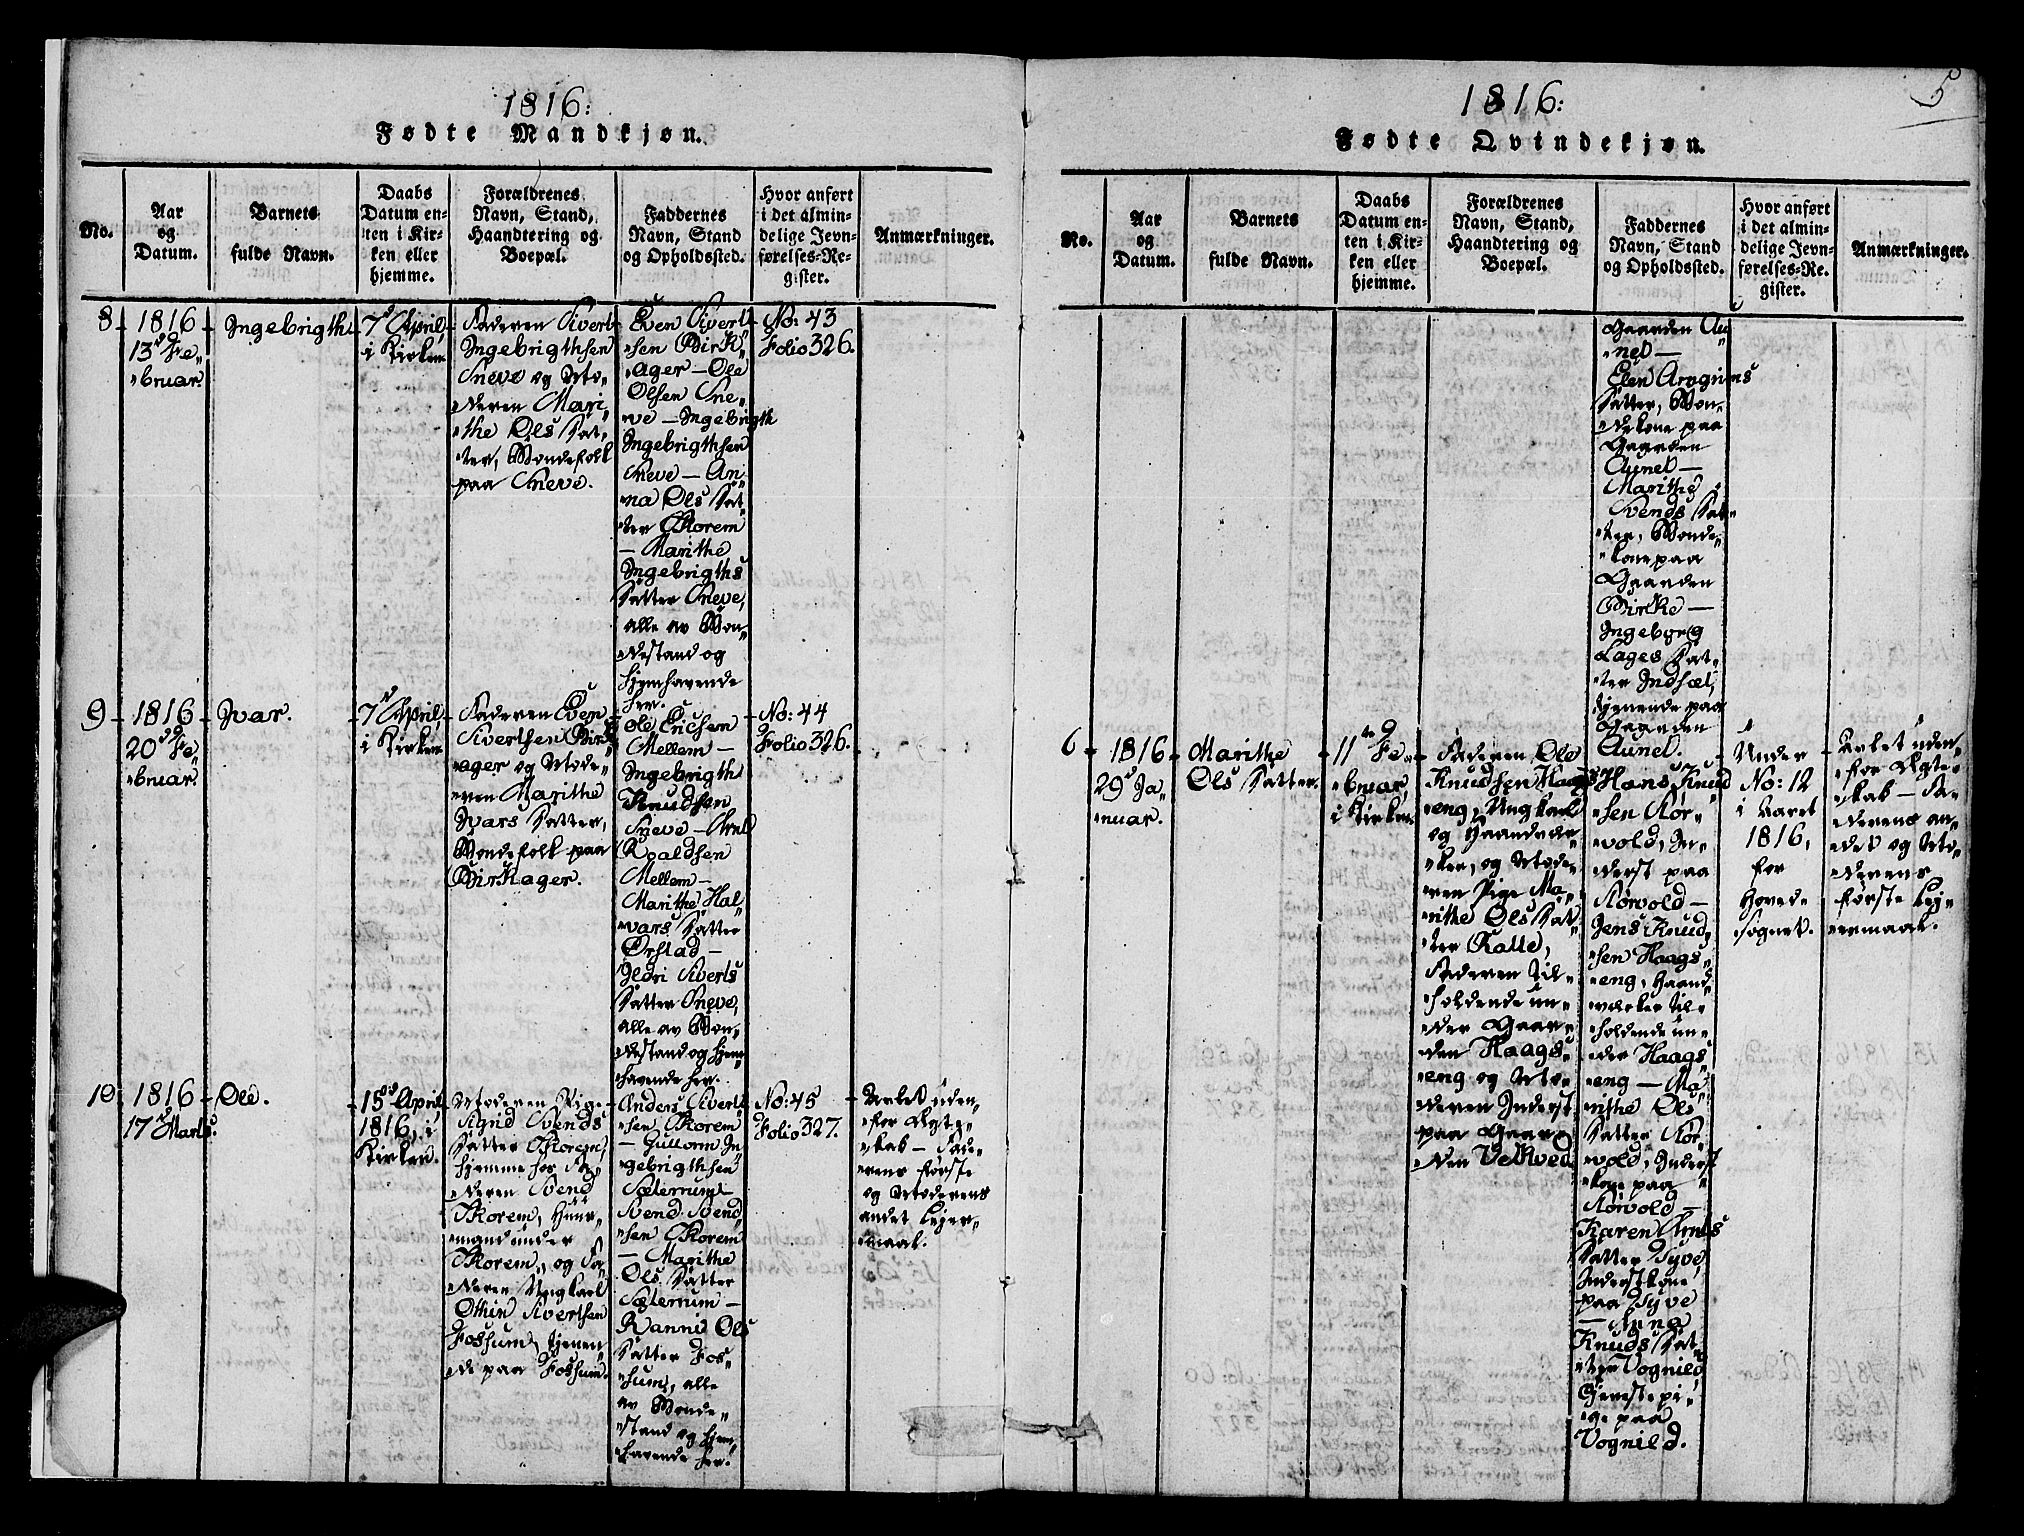 1816:
Fødte Mandkjøn.
No.
Aar
og
Datum.
Barnets
fulde Navn.
Daabs
Datum en-
ten i Kir-
ken eller
hjemme.
Forældrenes
Navn, Stand,
Haandtering og
Boepæl.
Faddernes
Navn, Stand
og Opholdssted.
Hvor anført
i det almin-
delige Jevn-
førelses-Re-
gister.
Anmærkninger.
8
1816
13d Fe„
„bruar.
Ingebrigth
7d April,
i Kirken
Faderen Sivert
Ingebrigthsen
Sneve og Mo„
„deren Mari„
„the Ols Dat„
„ter, Bondefolk
paa Sneve.
Even Sivert
„sen Birk„
„ager – Ole
Olsen Sne„
„ve – Ingebrigth
Ingebrigthsen
Sneve – An„
„na Ols Dat„
„ter Skorem
– Marithe
Ingebrigths
Datter Sneve,
alle av Bon„
„destand og
hjemhavende
her.
No: 43
Folio 326.
9
1816
20d Fe„
„bruar.
Ivar.
7d April,
i Kirken
Faderen Even
Sivertsen Birk„
„ager og Mode„
„ren Marithe
Ivars Datter,
Bondefolk paa
Birkager.
Ole Ericsen
Mellem –
Ingebrigth
Knudsen
Sneve – Arnt
Roaldsen
Mellem –
Marithe Hal„
„vars Datter
Ørstad –
Ildri Siverts
Datter Sneve,
alle av Bon„
„destand og hjem„
„havende her.
No: 44
Folio 326.
10
1816
17d Marts.
Ole.
15d April
1816, i
Kirken.
Moderen Pige
Sigrid Svends
Datter Skorem,
hjemme hos Fa„
„deren Svend
Skorem, Huus„
„mand under
Skorem, og Fa„
„deren Ungkarl
Othin Sivertsen
Fossum, tjenen„
„de paa Fossum.
Anders Sivert
„sen Skorem
– Guttorm In„
„gebrigthsen
Sæterrum –
Svend Svend„
„sen Skorem
– Marithe
Ols Datter
Sæterrum –
Ranni Ols
Datter Fos„
„sum, alle
av Bonde„
„stand og hjem„
„havende her.
No: 45
Folio 327.
Avlet uden„
„for Ægte„
„skab – Fade„
„rens første
og Moderens
andet Lejer„
„maal.
1816:
5
Fødte Qvindekjøn.
No.
Aar
og
Datum.
Barnets
fulde Navn.
Daabs
Datum en-
ten i Kir-
ken eller
hjemme.
Forældrenes
Navn, Stand,
Haandtering og
Boepæl.
Faddernes
Navn, Stand
og Opholdssted.
Hvor anført
i det almin-
delige Jevn-
førelses-Re-
gister.
Anmærkninger.
Gaarden Au„
„net –
Elen Arngrims
Datter, Bon„
„dekone paa
Gaarden
Aunet –
Marithe
Svends Dat„
„ter, Bonde„
„kone paa
Gaarden
Birke –
Ingeborg
Lages Dat„
„ter Indset,
tjenende paa
Gaarden
Aunet.
6
1816
29d Ja„
„nuar.
Marithe
Ols Datter.
11te Fe„
„bruar,
i Kirken
Faderen Ole
Knudsen Haags„
„eng, Ungkarl
og Haandvær„
„ker, og Mode„
„ren Pige Ma„
„rithe Ols Dat„
„ter Ratte,
Faderen til„
„holdende un„
„der Gaar„
„den Haags„
„eng og Mo„
„deren Inderst
paa Gaar„
„den Vetkved.
Hans Knud
„sen Rør„
„vold, In„
„derst paa
Rørvold –
Jens Knud„
„sen Haags„
„eng, Haand„
„værker til„
„holdende un„
„der Haags„
„eng – Ma„
„rithe Ols
Datter Rør„
„vold, Inderst
„kone paa
Rørvold –
Karen Arnts
Datter Tyve,
Inderstkone
paa Tyve
– Anna
Knuds Dat„
„ter Vognild
Tjenestepi„
„ge paa
Vognild.
Under
No: 12
i Aaret
1816,
for
Hoved„
„sognet.
Avlet uden„
„for Ægte„
„skab – Fa„
„derens an„
„det og Mo„
„derens
første Lej„
„ermaal.